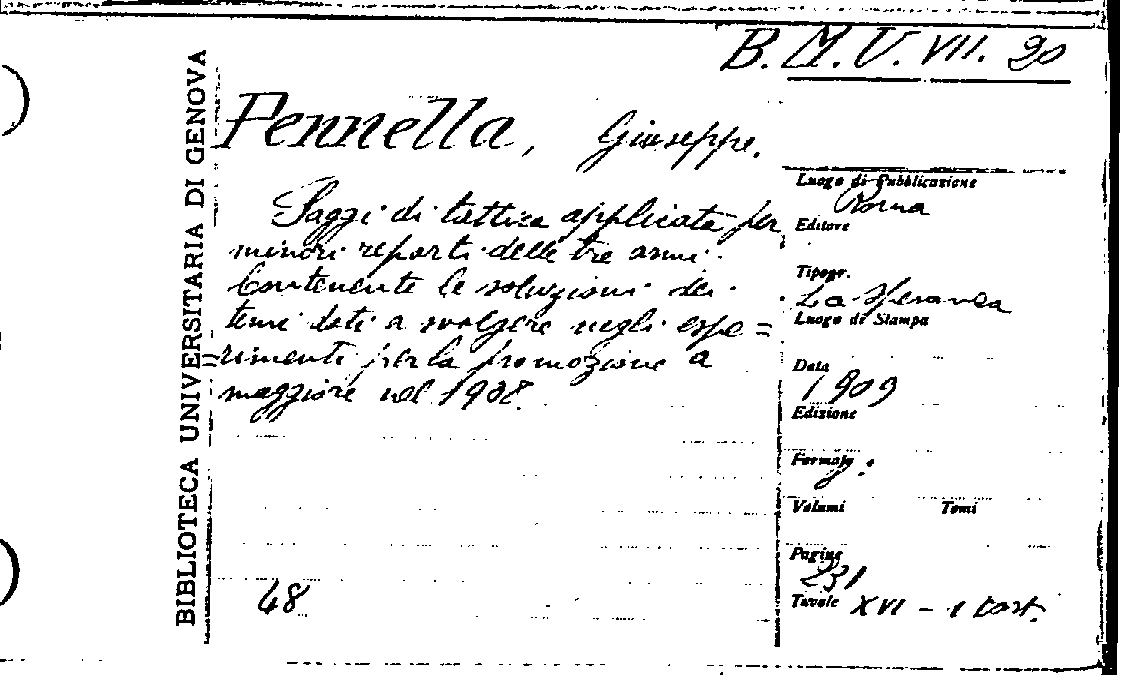 B. M. V. VII. 20
BIBLIOTECA UNIVERSITARIA DI GENOVA
Pennella, Giuseppe.
Saggi di tattica applicata per
minori reparti delle tre armi.
Contenente le soluzioni dei
temi dati a svolgere negli espe=
rimenti per la promozione a
maggiore nel 1908.
48
Luogo di Pubblicazione
Roma
Editore
Tipogr.
La Speranza
Luogo di Stampa
Data
1909
Edizione
Formato
Volumi Tomi
Pagine
231
Tavole XVI - 1 cart.